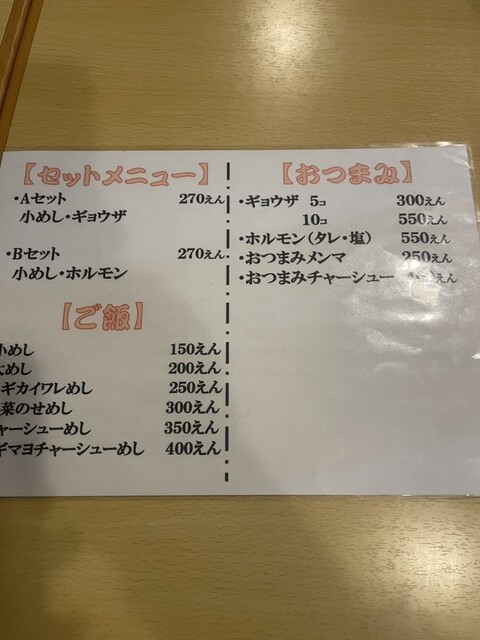 【セットメニュー】
・Aセット 270えん
小めし・ギョウザ
・Bセット 270えん
小めし・ホルモン
【ご飯】
小めし 150えん
大めし 200えん
ギカイワレめし 250えん
菜のせめし 300えん
ャーシューめし 350えん
ギマヨチャーシューめし 400えん
【おつまみ】
・ギョウザ 5コ 300えん
10コ 550えん
・ホルモン(タレ・塩) 550えん
・おつまみメンマ 250えん
・おつまみチャーシュー